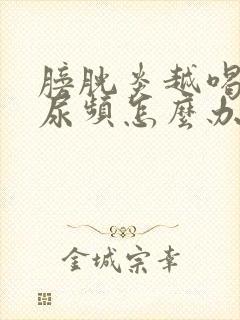 膀胱炎越喝
尿頻怎麼办
金城宗幸